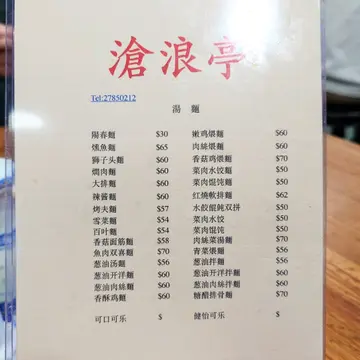 滄浪亭
Tel:27850212
湯 麵
陽春麵 $30
燻魚麵 $65
獅子头麵 $60
焗肉麵 $60
大排麵 $60
辣醬麵 $60
烤夫麵 $57
雪菜麵 $54
百叶麵 $54
香菇面筋麵 $58
魚肉双喜麵 $70
葱油汤麵 $56
葱油开洋麵 $60
葱油肉絲麵 $60
香酥鸡麵 $60
可口可乐 $
嫩鸡煨麵 $60
肉絲煨麵 $60
香菇鸡煨麵 $70
菜肉水饺麵 $50
菜肉馄饨麵 $50
红燒軟排麵 $62
水餃餛飩双拼 $50
菜肉水饺 $50
菜肉馄饨 $50
肉絲菜湯麵 $70
青菜煨麵 $56
葱油拌麵 $56
葱油开洋拌麵 $60
葱油肉絲拌麵 $60
糖醋排骨麵 $70
健怡可乐 $